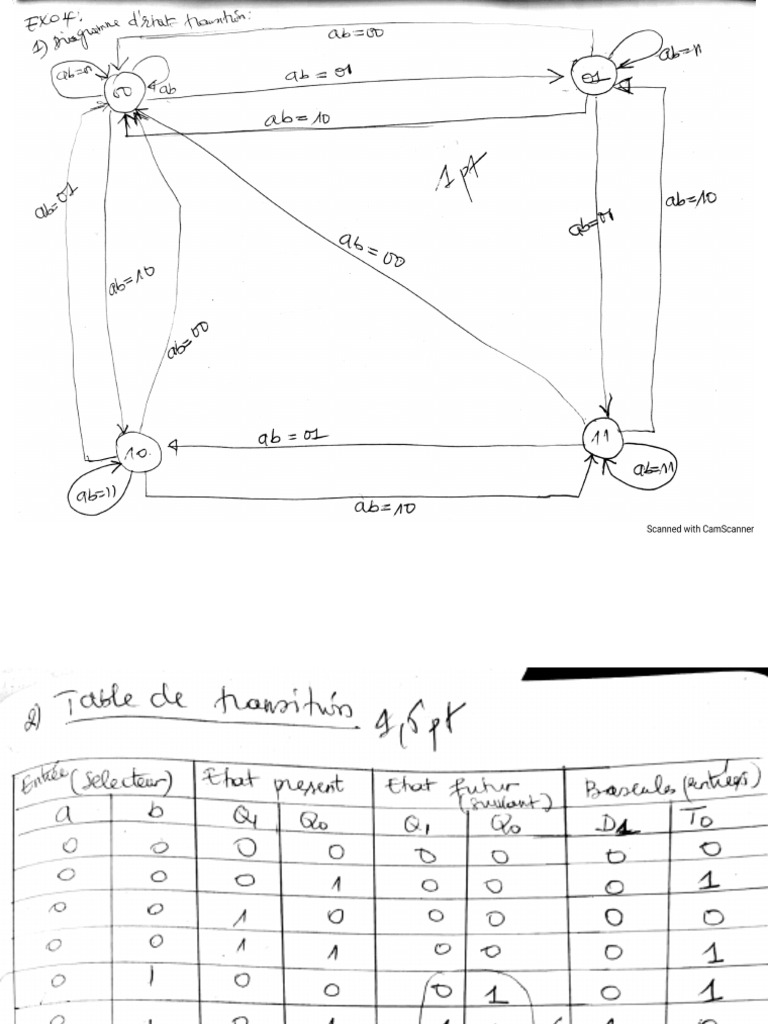 EXO4:
1) Diagramme d'état transition:
ab=00
ab=11
ab=11
00
ab
ab=01
01
ab=10
1 pt
ab=01
ab=00
ab=01
ab=10
ab=10
ab=00
10
ab=01
11
ab=11
ab=11
ab=10
Scanned with CamScanner
2) Table de transitions 1,5 pt
Entrée (Sélecteur) Etat present Etat futur (suivant) Bascules (entrées)
a b Q1 Q0 Q1 Q0 D1 T0
0 0 0 0 0 0 0 0
0 0 0 1 0 0 0 1
0 0 1 0 0 0 0 0
0 0 1 1 0 0 0 1
0 1 0 0 0 1 0 1